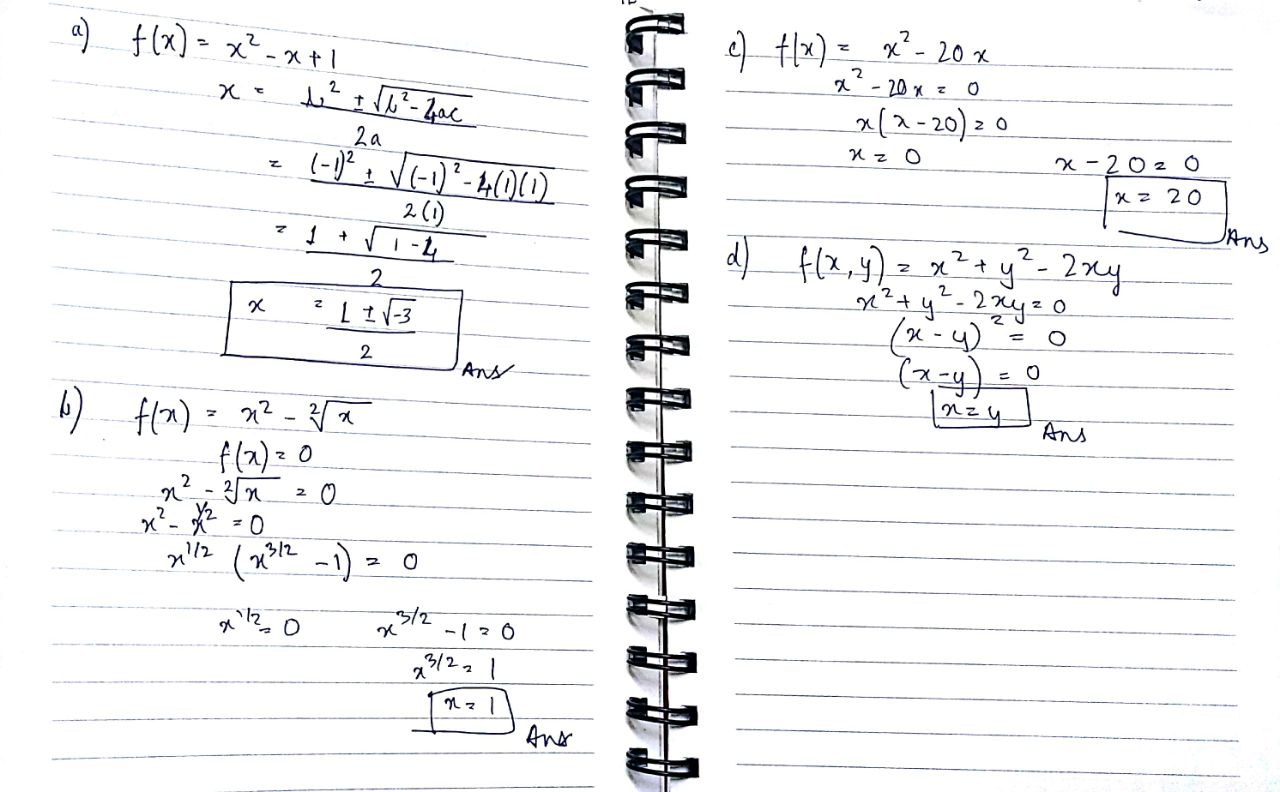 a) f(x) = x² - x + 1
x = b² ± √(b² - 4ac) / 2a
= (-1)² ± √((-1)² - 4(1)(1)) / 2(1)
= 1 + √(1 - 4) / 2
x = 1 ± √-3 / 2
Ans
b) f(x) = x² - ²√x
f(x) = 0
x² - ²√x = 0
x² - x^1/2 = 0
x^1/2 (x^3/2 - 1) = 0
x^1/2 = 0 x^3/2 - 1 = 0
x^3/2 = 1
x = 1
Ans
c) f(x) = x² - 20x
x² - 20x = 0
x(x - 20) = 0
x = 0 x - 20 = 0
x = 20
Ans
d) f(x, y) = x² + y² - 2xy
x² + y² - 2xy = 0
(x - y)² = 0
(x - y) = 0
x = y
Ans